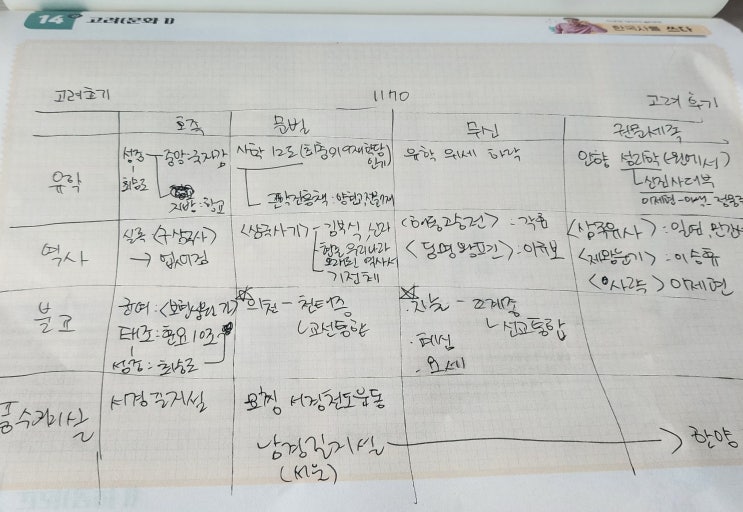 14 고려(문화 1)
한국사를 쓰다
고려초기 1170 고려 후기
호족 문벌 무신 권문세족
유학
성종 중앙:국자감
최승로
지방:향교
사학 12도 (최충의 9재학당)
인기
관학진흥책:
유학 위세 타락
안향 성리학(원에서)
신진사대부
이제현-이색-
역사
실록
→ 없어짐
<삼국사기> 김부식, 신라
현존 우리나라
오래된 역사서
기전체
<해동고승전>:각훈
<동명왕편>:이규보
<삼국유사>:일연
<제왕운기>:이승휴
<사략> 이제현
불교
균여:
태조:훈요10조
성종:최승로
의천 - 천태종
교선통합
지눌 - 조계종
선교통합
·혜심
·요세
풍수지리설
서경길지설
묘청 서경천도운동
남경길지설 → 한양
(서울)